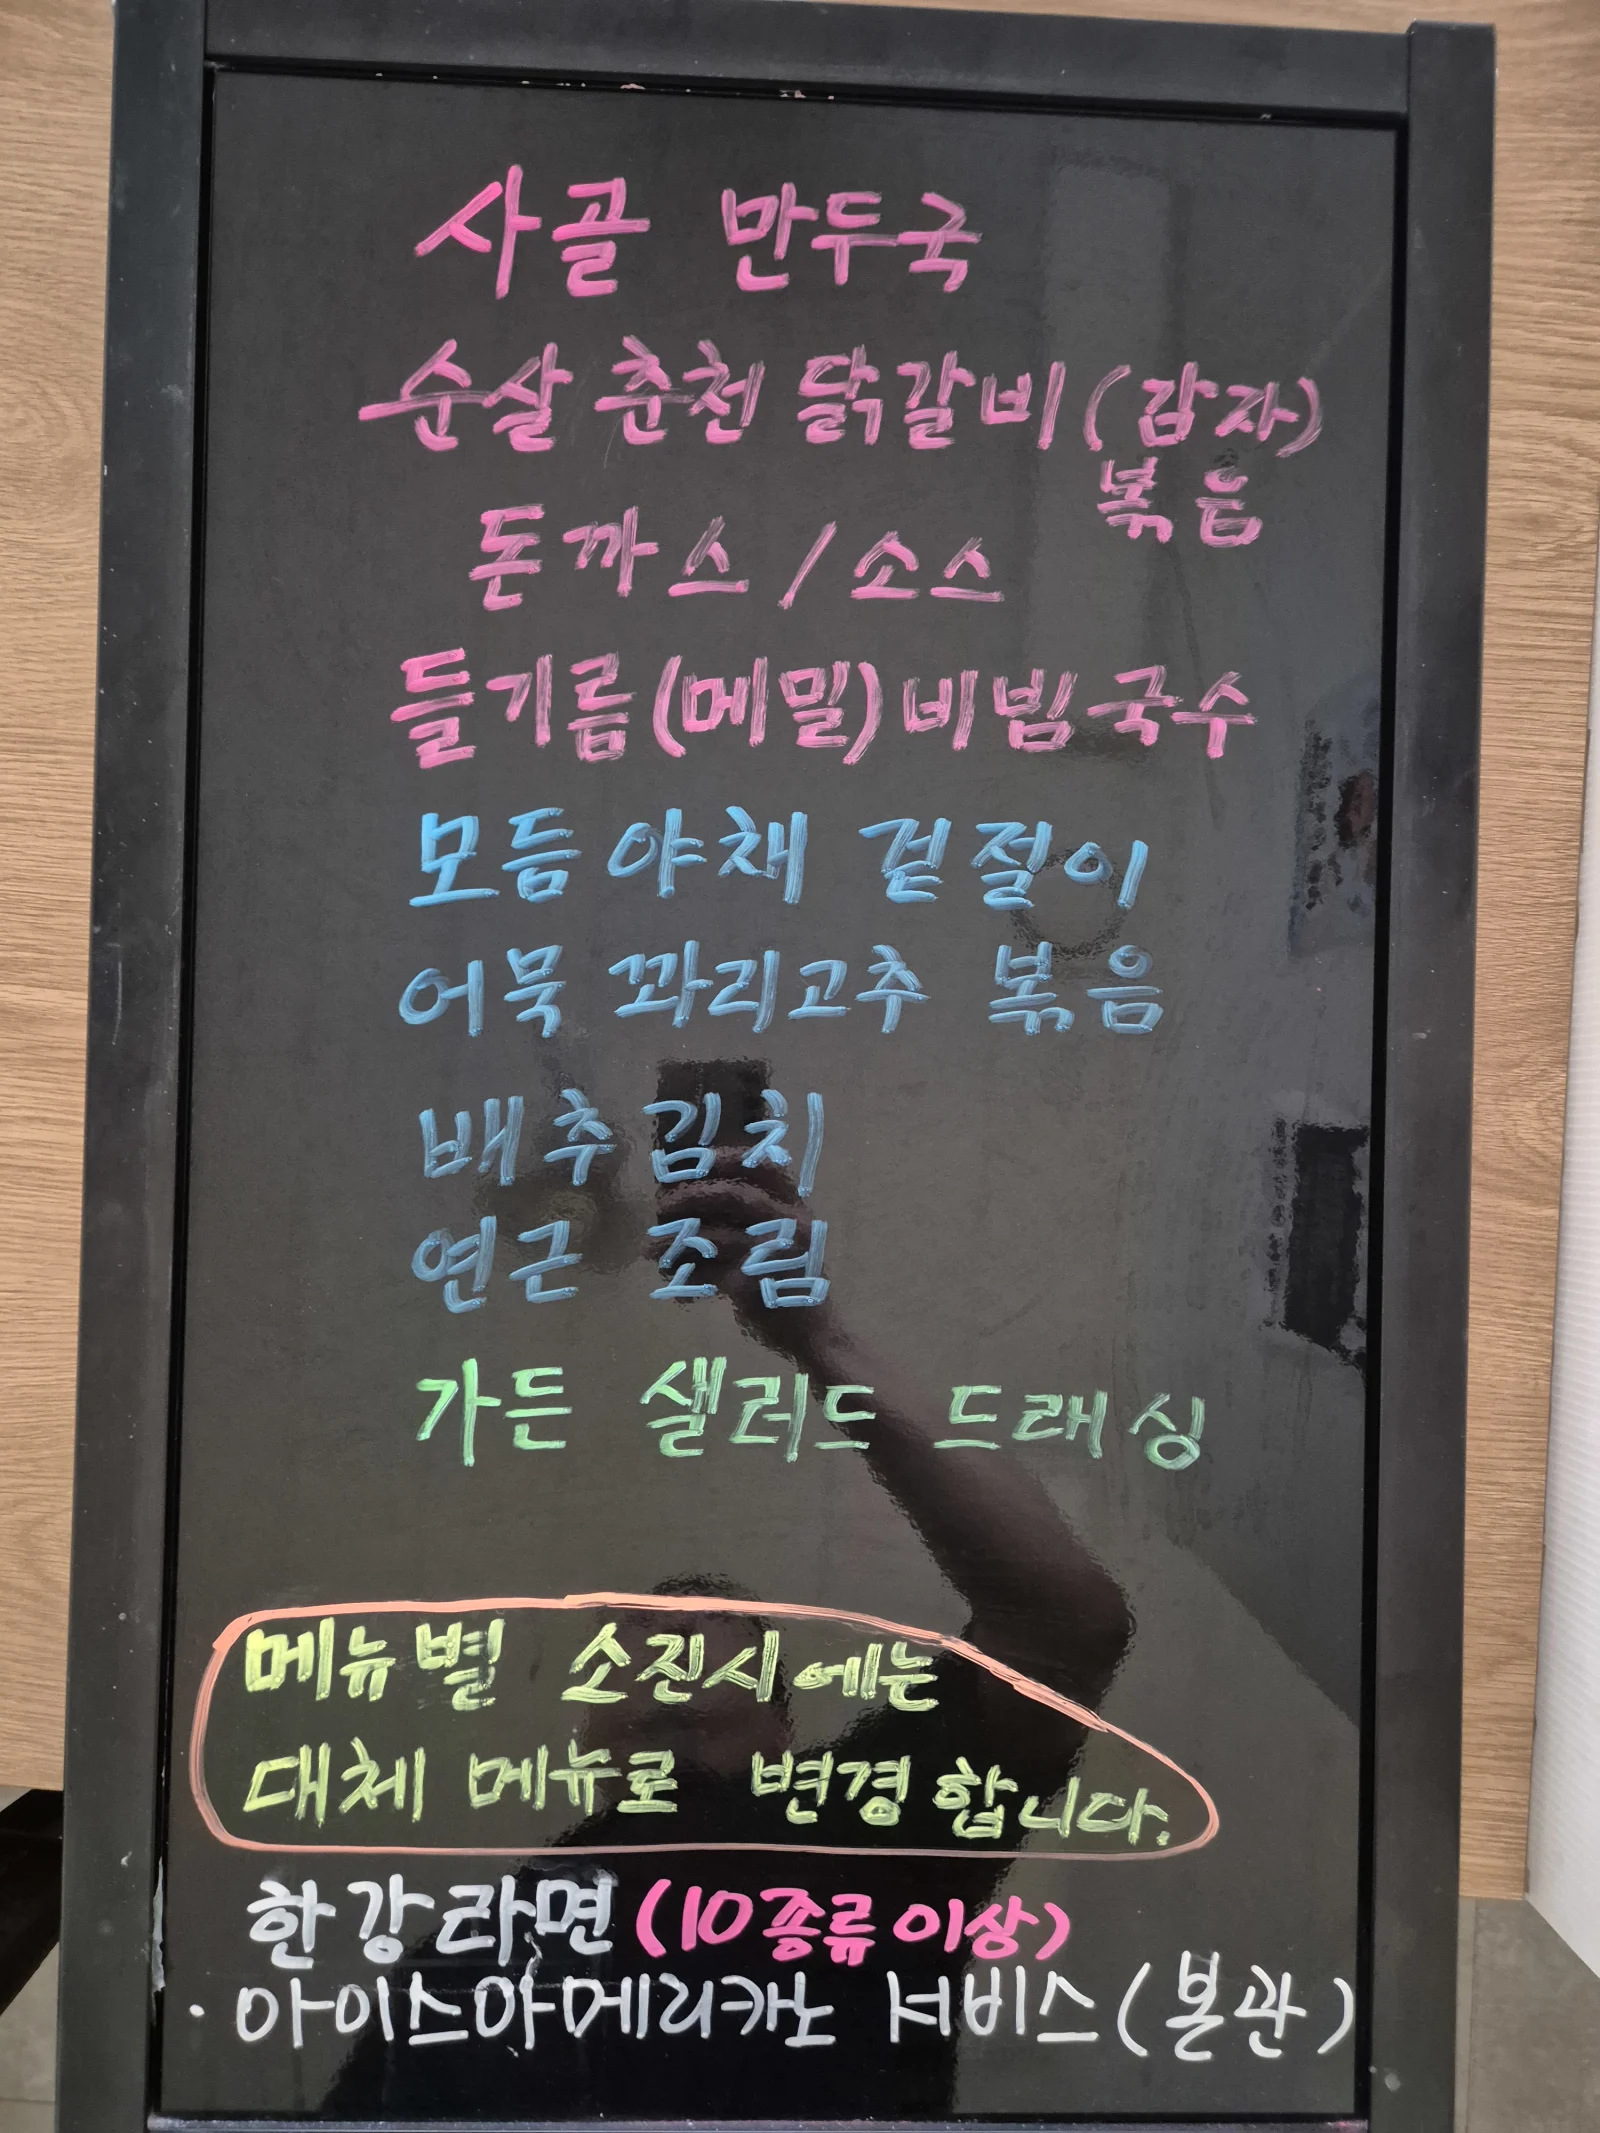 사골 만두국
순살 춘천 닭갈비 (감자)
볶음
돈까스 / 소스
들기름(메밀) 비빔국수
모듬야채 겉절이
어묵 꽈리고추 볶음
배추김치
연근 조림
가든 샐러드 드래싱
메뉴별 소진시에는
대체 메뉴로 변경합니다.
한강라면 (10종류이상)
· 아이스아메리카노 서비스 (본관)